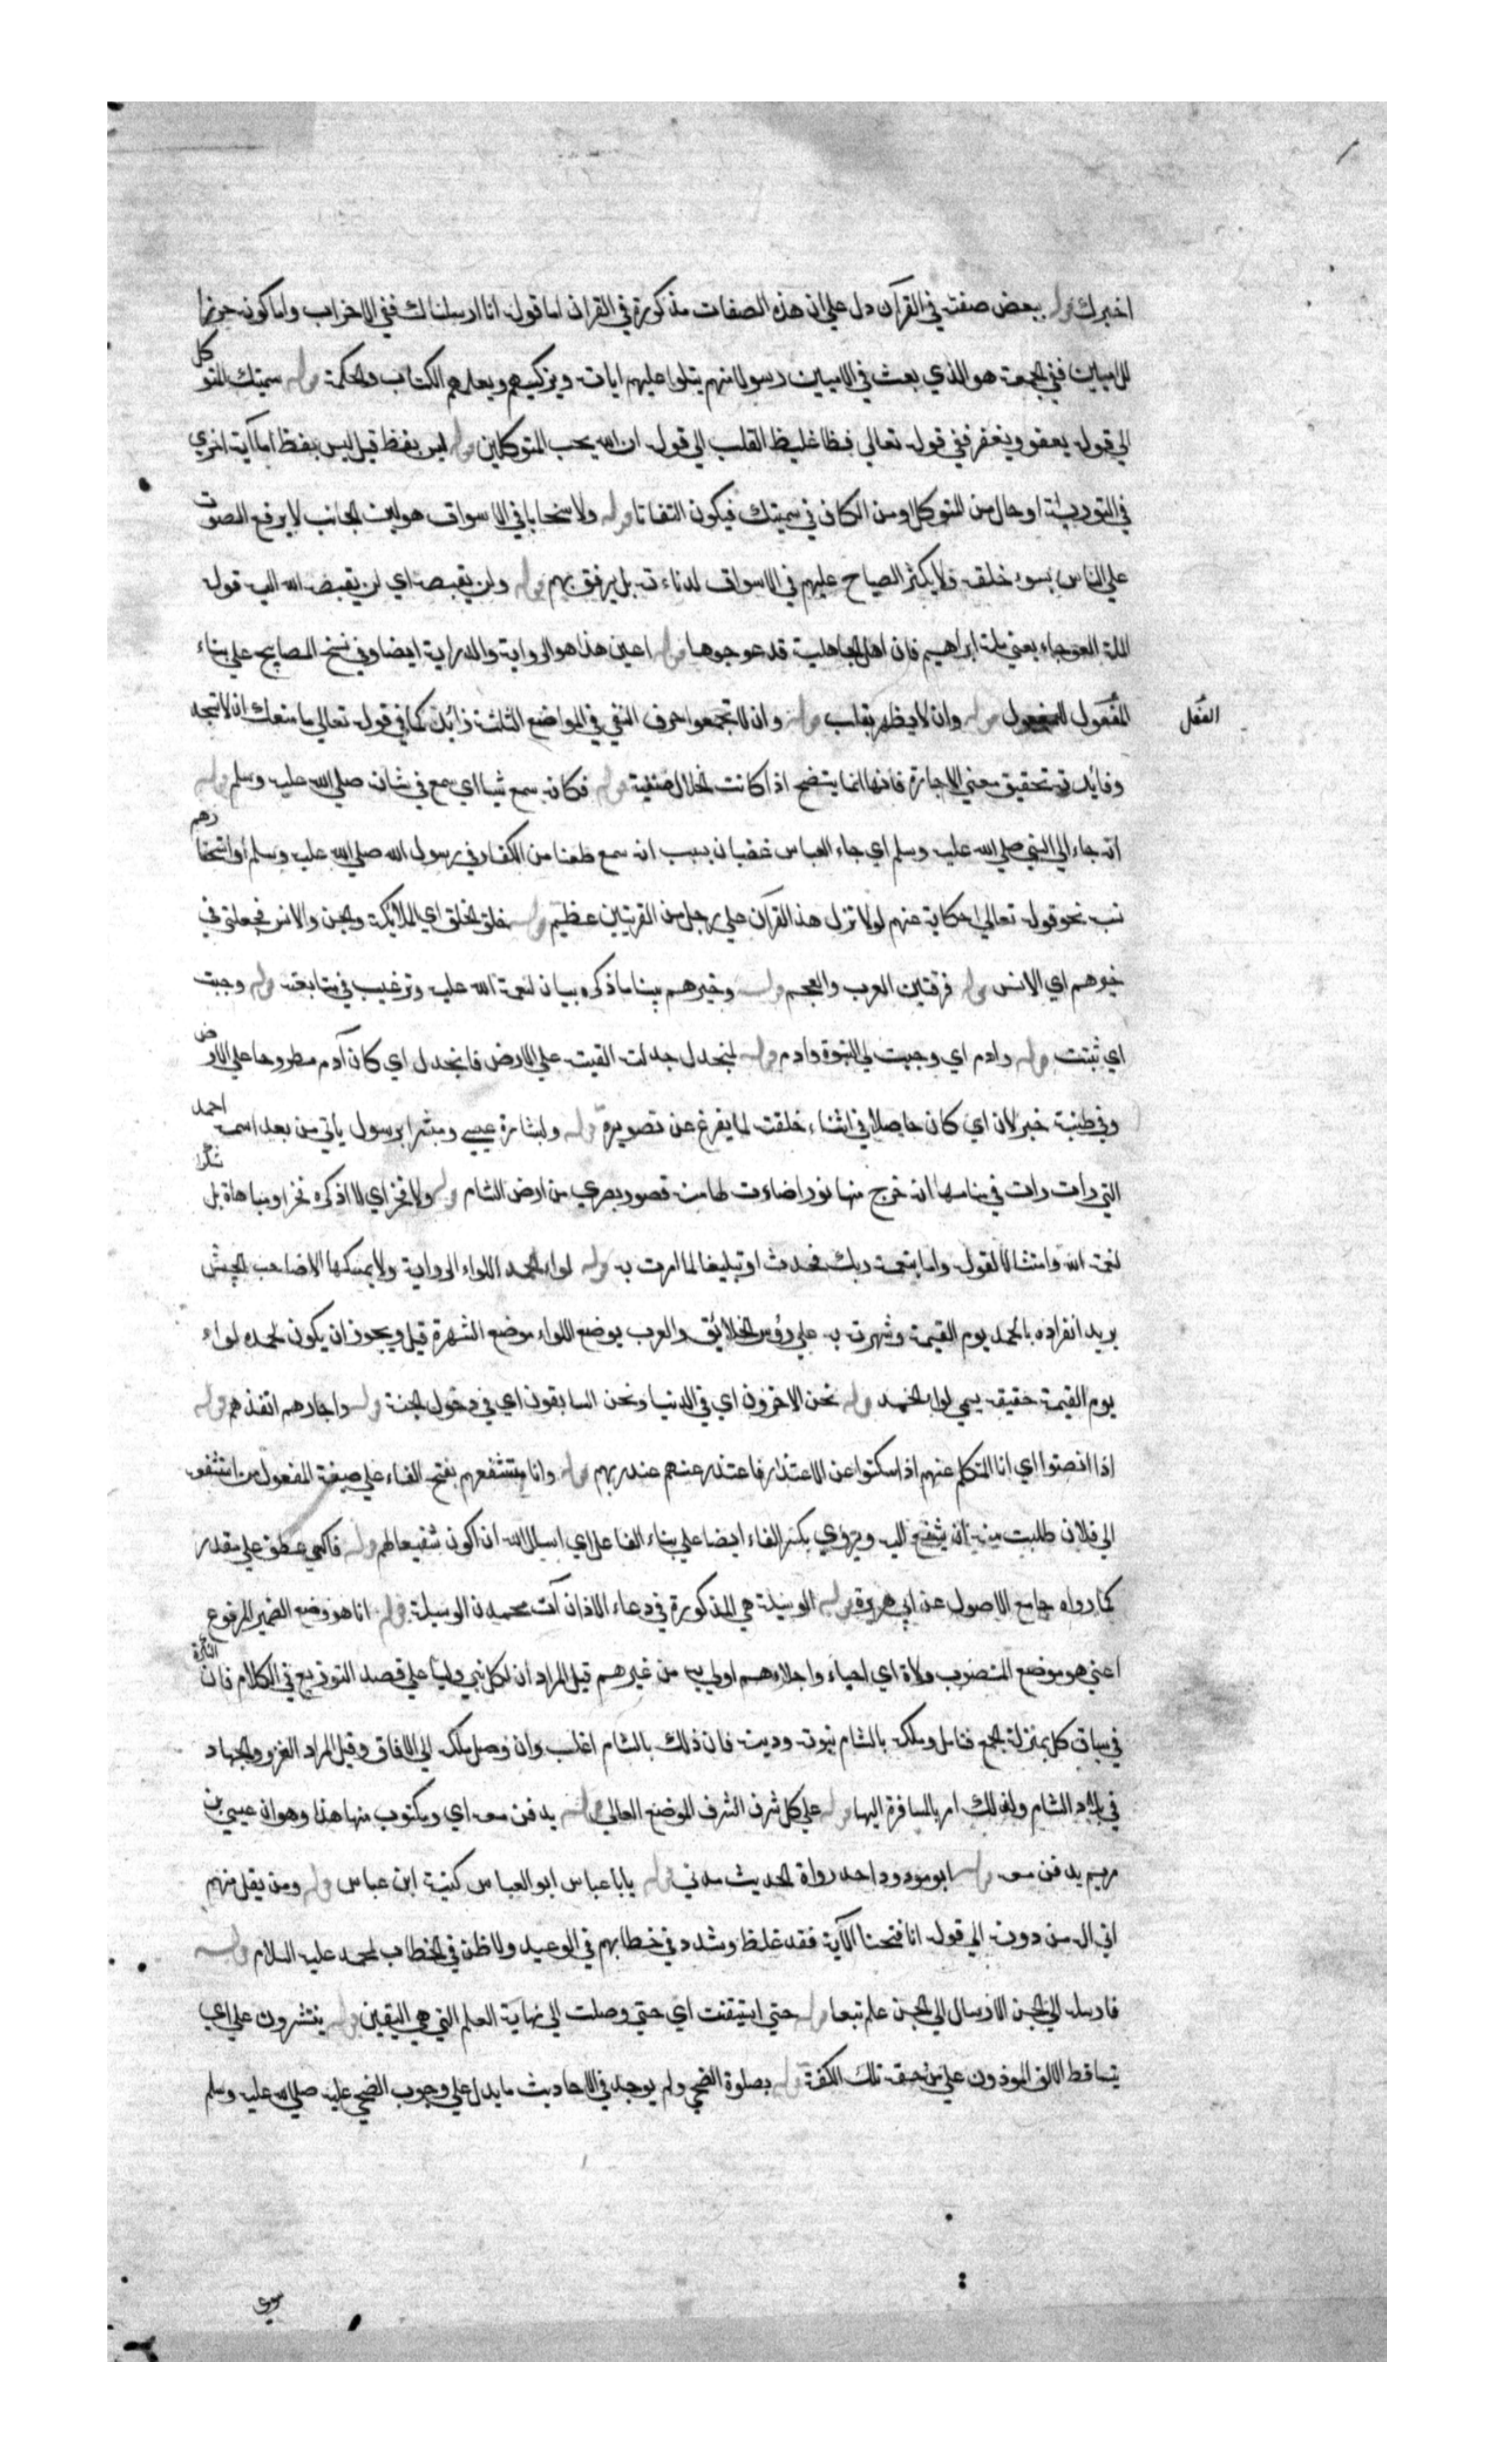 اخبرك قوله ببعض صفته في القرآن دل علي ان هذه الصفات مذكورة في القران اما قوله انا ارسلناك ففي الاحزاب واما كونه حرزا
للاميين ففي الجمعة هو الذي بعث في الاميين رسولا منهم يتلوا عليهم اياته ويزكيهم ويعلمهم الكتاب والحكمة قوله سميتك المتوكل
الي قوله يعفو ويغفر ففي قوله تعالي فظا غليظ القلب الي قوله ان الله يحب المتوكلين قوله ليس بفظ قيل ليس بفظ اما آية اخري
في التورية او حال من المتوكل او من الكاف في سميتك فيكون التفاتا قوله ولا سخابا في الاسواق هو لين الجانب لا يرفع الصوت
علي الناس بسوء خلقه ولا يكثر الصياح عليهم في الاسواق لدناءته بل يرفق بهم قوله ولن يقبضه اي لن يقبضه الله اليه قوله
الملة العوجاء يعني ملة ابراهيم فان اهل الجاهلية قد عوجوها قوله اعين هذا هو الرواية والدراية ايضا وفي نسخ المصابيح علي بناء
المفعول قوله وان لا يظهر قوله وان لا تجمعوا حرف النفي في المواضع الثلثة زائدة كما في قوله تعالي ما منعك ان لا تسجد
الفعل
وفايدته تحقيق معني الاجارة فانها انما يتضح اذا كانت الخلال منفية قوله فكانه سمع شيا اي سمع في شانه صلي الله عليه وسلم قوله
انه جاء الي النبي صلي الله عليه وسلم اي جاء العباس غضبان بسبب انه سمع طعنا من الكفار في رسول الله صلي الله عليه وسلم
نحو قوله تعالي حكاية عنهم لولا نزل هذا القرآن علي رجل من القريتين عظيم قوله خلق الخلق اي الملائكة والجن والانس فجعلني في
خيرهم اي الانس قوله فرقتين العرب والعجم قوله وخيرهم بيتا ما ذكره بيان لنعمة الله عليه وترغيب في متابعته قوله وجبت
اي ثبتت قوله وادم اي وجبت لي النبوة وادم قوله لمنجدل جدلته القيته علي الارض فانجدل اي كان آدم مطروحا علي الارض
وفي طينته خبر لان اي كان حاصلا في اثناء خلقته لما يفرغ عن تصويره قوله ولبشارة عيسي ومبشرا برسول ياتي من بعد اسمه احمد
التي رات رات في منامها انه خرج منها نور اضاءت لها منه قصور بصري من ارض الشام قوله ولا فخر اي لا اذكره فخرا ومباهاة بل شكرا
لنعمة الله وامتثالا لقوله واما بنعمة ربك فحدث او تبليغا لما امرت به قوله لواء الحمد اللواء الراية ولا يمسكها الا صاحب الجيش
يريد انفراده بالحمد يوم القيمة وشهرته به علي رؤس الخلائق والعرب يوضع اللواء موضع الشهرة قيل ويجوز ان يكون لحمده لواء
يوم القيمة حقيقة يسمي لواء الحمد قوله نحن الاخرون اي في الدنيا ونحن السابقون اي في دخول الجنة قوله واجارهم انقذهم قوله
اذا انصتوا اي انا المتكلم عنهم اذا سكتوا عن الاعتذار فاعتذر عنهم عند ربهم قوله وانا مستشفعهم بفتح الفاء علي صيغة المفعول من استشفعته
الي فلان طلبت منه ان يشفع اليه ويروي بكسر الفاء ايضا علي بناء الفاعل اي اسال الله ان اكون شفيعا لهم قوله فاكسي عطف علي مقدر
كما رواه جامع الاصول عن ابي هريرة قوله الوسيلة هي المذكورة في دعاء الاذان آت محمدن الوسيلة قوله انا هو وضع الضمير المرفوع
اعني هو موضع المنصوب ولاة اي احباء واجلاءهم اولي به من غيرهم قيل المراد ان لكل نبي وليا علي قصد التوزيع في الكلام فان النكرة
في سياق كل بمنزلة الجمع فتامل وملكه بالشام نبوته ودينه فان ذلك بالشام اغلب وان وصل ملكه الي الافاق وقيل المراد الغزو والجهاد
في بلاد الشام ولذلك امر بالمسافرة اليها قوله علي كل شرف الشرف الموضع العالي قوله يدفن معه اي ومكتوب منها هذا وهو ان عيسي بن
مريم يدفن معه قوله ابو مودود احد رواة الحديث مدني قوله يابا عباس ابو العباس كنية ابن عباس قوله ومن يقل منهم
اني اله من دونه الي قوله انا فتحنا الآية فقد غلظ وشدد في خطابهم في الوعيد ولاطف في الخطاب لمحمد عليه السلام قوله
فارسله الي الجن الارسال الي الجن علم تبعا قوله حتي استيقنت اي حتي وصلت الي نهاية العلم التي هي اليقين قوله ينتثرون علي اي
يتساقط الالف الموزون علي من خفة تلك الكفة قوله بصلوة الضحي ولم يوجد في الاحاديث ما يدل علي وجوب الضحي عليه صلي الله عليه وسلم